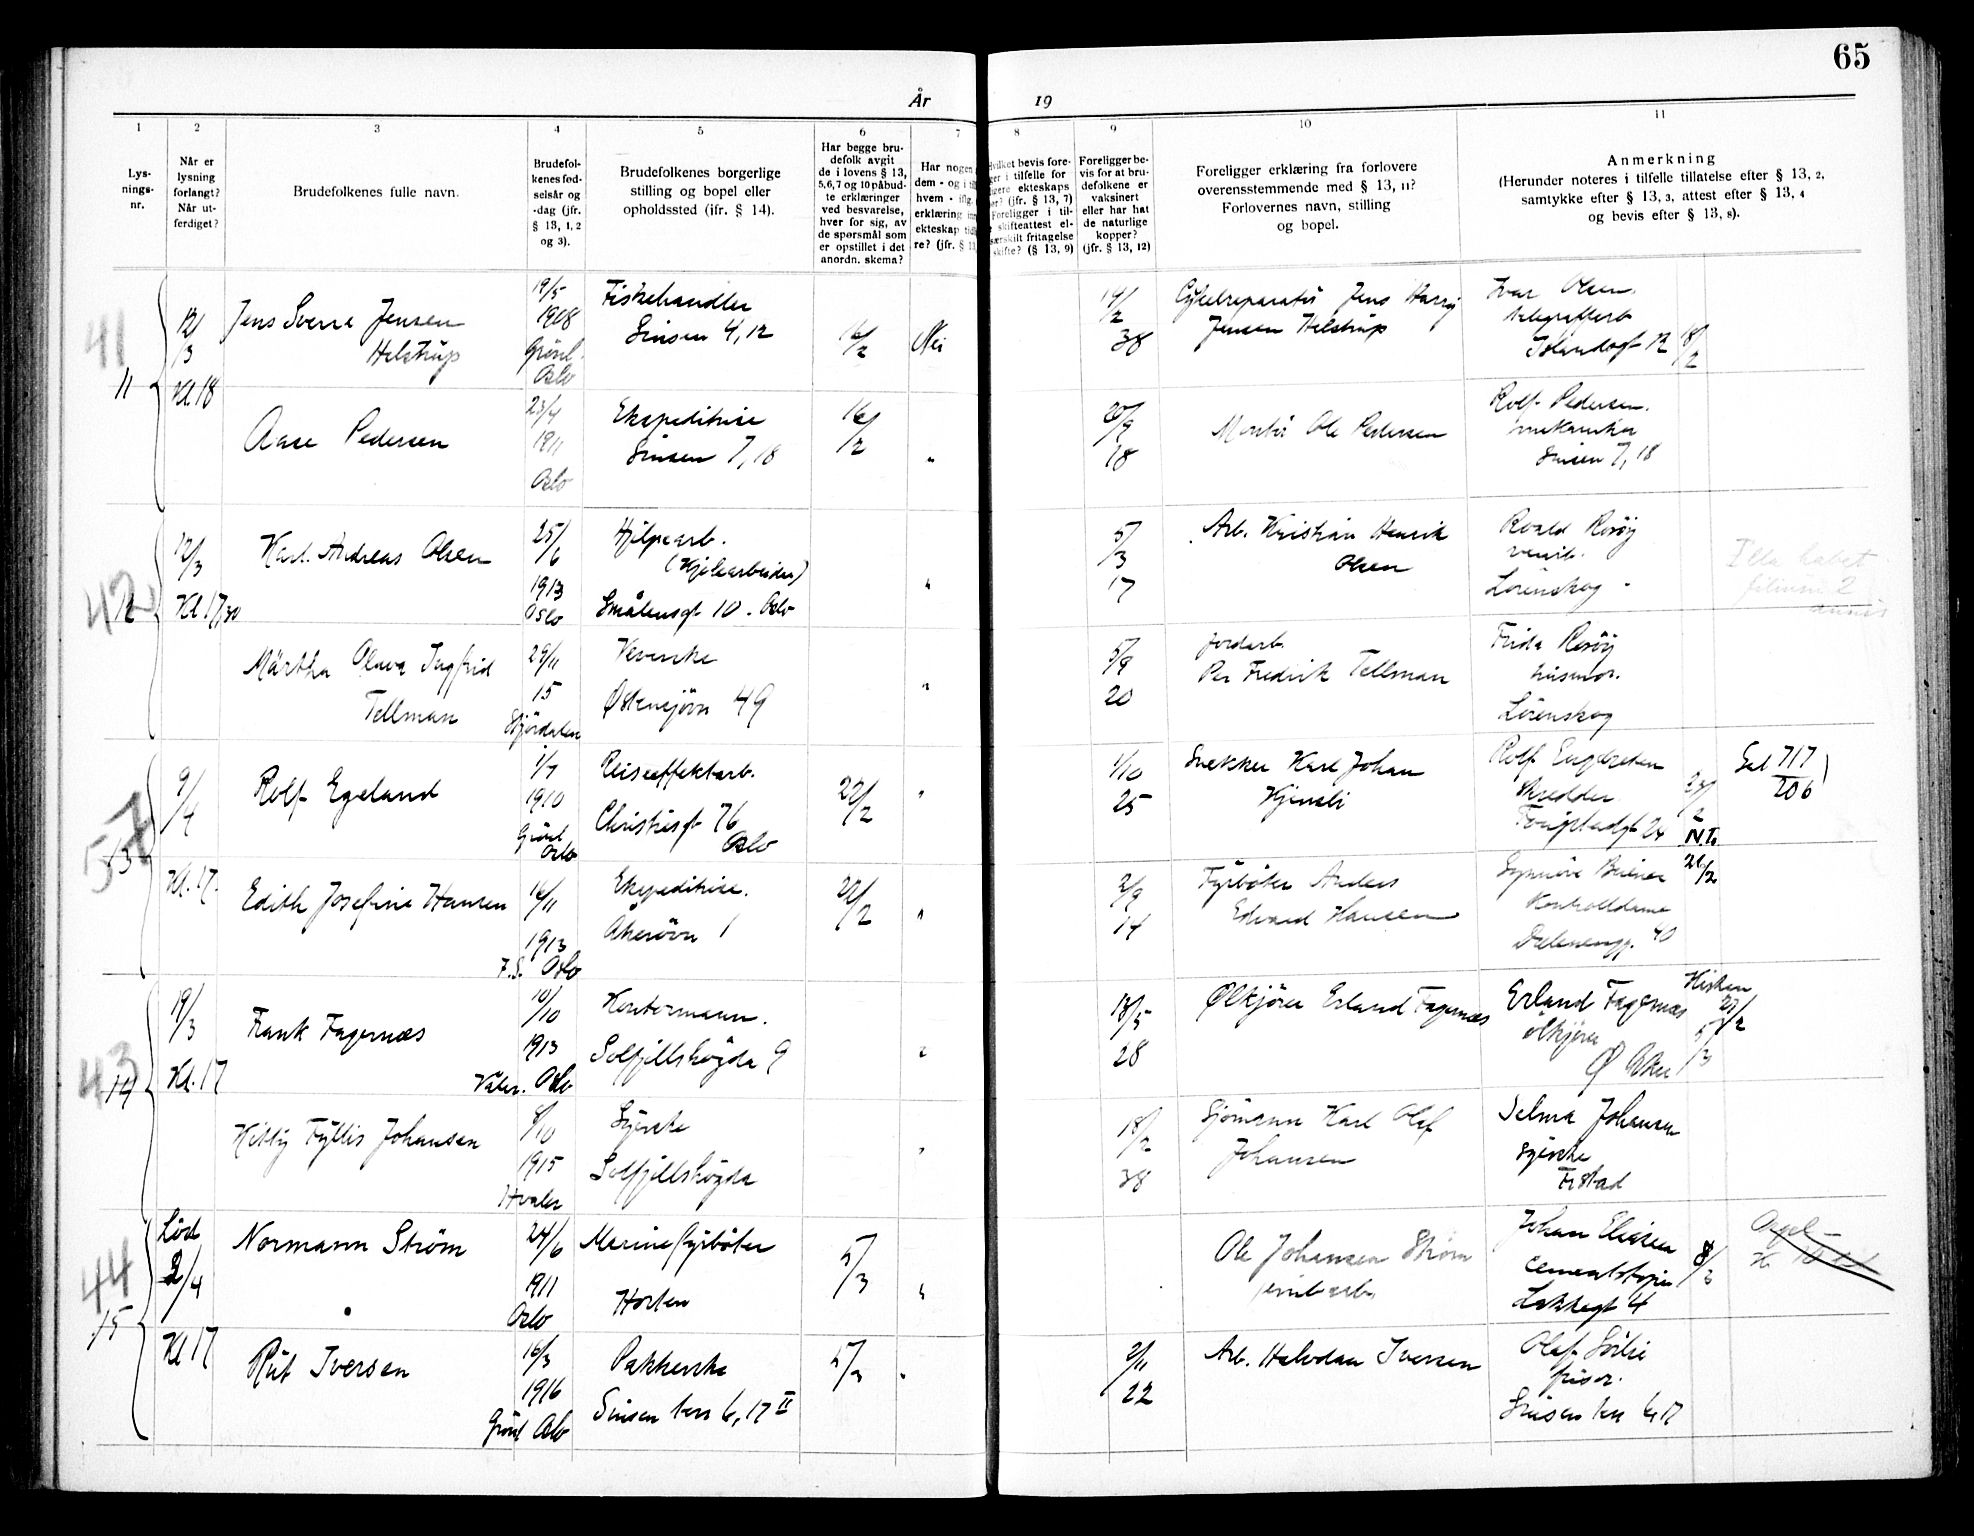 65
År 19
1 2 3 4 5 6 7 8 9 10 11
Lys-
nings-
nr.
Når er
lysning
forlangt?
Når ut-
ferdiget?
Brudefolkenes fulle navn.
Brudefol-
kenes fød-
selsår og
-dag (jfr.
§ 13, 1, 2
og 3).
Brudefolkenes borgerlige
stilling og bopel eller
opholdssted (ifr. § 14).
Har begge bru-
defolk avgit
de i lovens § 13,
5,6,7 og 10 påbud-
te erklæringer
ved besvarelse,
hver for sig, av
de spørsmål som
er opstillet i det
anordn. skema?
Har nogen
dem - og i
hvem - iflg.
erklæring
ekteskap
re? (jfr. §
Hvilket bevis fore-
i tilfelle for
ekteskaps
(jfr. § 13, 7)
Foreligger i til-
skifteattest el-
særskilt fritagelse
skifte? (§ 13, 9)
Foreligger be-
vis for at bru-
defolkene er
vaksinert
eller har hat
de naturlige
kopper?
(jfr. § 13, 12)
Foreligger erklæring fra forlovere
overensstemmende med § 13, 11?
Forlovernes navn, stilling
og bopel.
Anmerkning
(Herunder noteres i tilfelle tillatelse efter § 13, 2,
samtykke efter § 13, 3, attest efter § 13, 4
og bevis efter § 13, 8).
41
11
12/3
Kl 18
Jens Sverre Jensen
Helstrup
19/5
1908
Grønl.
Oslo
Fiskehandler
Sinsen 4, 12
16/2
Nei
14/2
38
Cykelreparatør Jens Harry
Jensen Helstrup
Ivar Olsen.
telegrafarb
Islandsgt 12
8/2
Aase Pedersen
23/4
1911
Oslo
Ekspeditrise
Sinsen 7, 18
16/2
"
20/9
18
Montør Ole Pedersen
Rolf Pedersen.
mekaniker
Sinsen 7, 18
42
12
12/3
Kl. 17,30
Karl Andreas Olsen
25/6
1913
Oslo
Hjelpearb.
(Kjelearbeider)
Smålensgt 10. Oslo
"
5/3
17
Arb. Kristian Henrik
Olsen
Roald Rosøy
Lørenskog
Illa habet
filium 2
annis
Märtha Olava Ingfrid
Tellman
29/11
15
Stjördalen
Veverske
Østensjøvn 49
"
5/9
20
Jordarb.
Per Fredrik Tellman
Frida Rosøy
husmor.
Lørenskog
57
13
9/4
Kl. 17.
Rolf Egeland
1/7
1910
Grønl
Oslo
Reiseeffektarb.
Christiesgt 76
Oslo
22/2
"
1/10
25
Snekker Karl Johan
Hjemsli
Rolf Engbretsen
Skredder
N.T.
717
206
Edith Josefine Hansen
16/11
1913
F.S. Oslo
Ekspeditrise.
Åkersvn 1
22/2
"
2/9
14
Fyrbøter Anders
Edvard Hansen
Kontrolldame
Dælenengg. 40
43
14
19/3
Kl. 17
Frank Fagernæs
10/10
1913
Våler. Oslo
Kontormann.
Solfjellshøgda 9
"
18/5
28
Ølkjører Erland Fagernæs
Erland Fagernæs
ølkjører
Ø Aker
5/3
Kitty Fyllis Johansen
8/10
1915
Hvaler
Syerske
Solfjellshøgda
"
18/2
38
Sjømann Karl Olaf
Johansen
Selma Johansen
syerske
44
15
Lørd
2/4
Kl 17
Normann Strøm
24/6
1911
Oslo
Marinefyrbøter
Horten
5/3
"
Ole Johansen Strøm
jernb arb.
Johan Eliesen
cementstøper
Lakkegt 4
8/3
Orgel
Rut Iversen
16/3
1916
Grønl Oslo
Pakkerske
Sinsen terr 6, 17 II
5/3
"
2/11
22
Arb. Halvdan Iversen
Olaf Sörlie
frisør.
Sinsen terr 6, 17